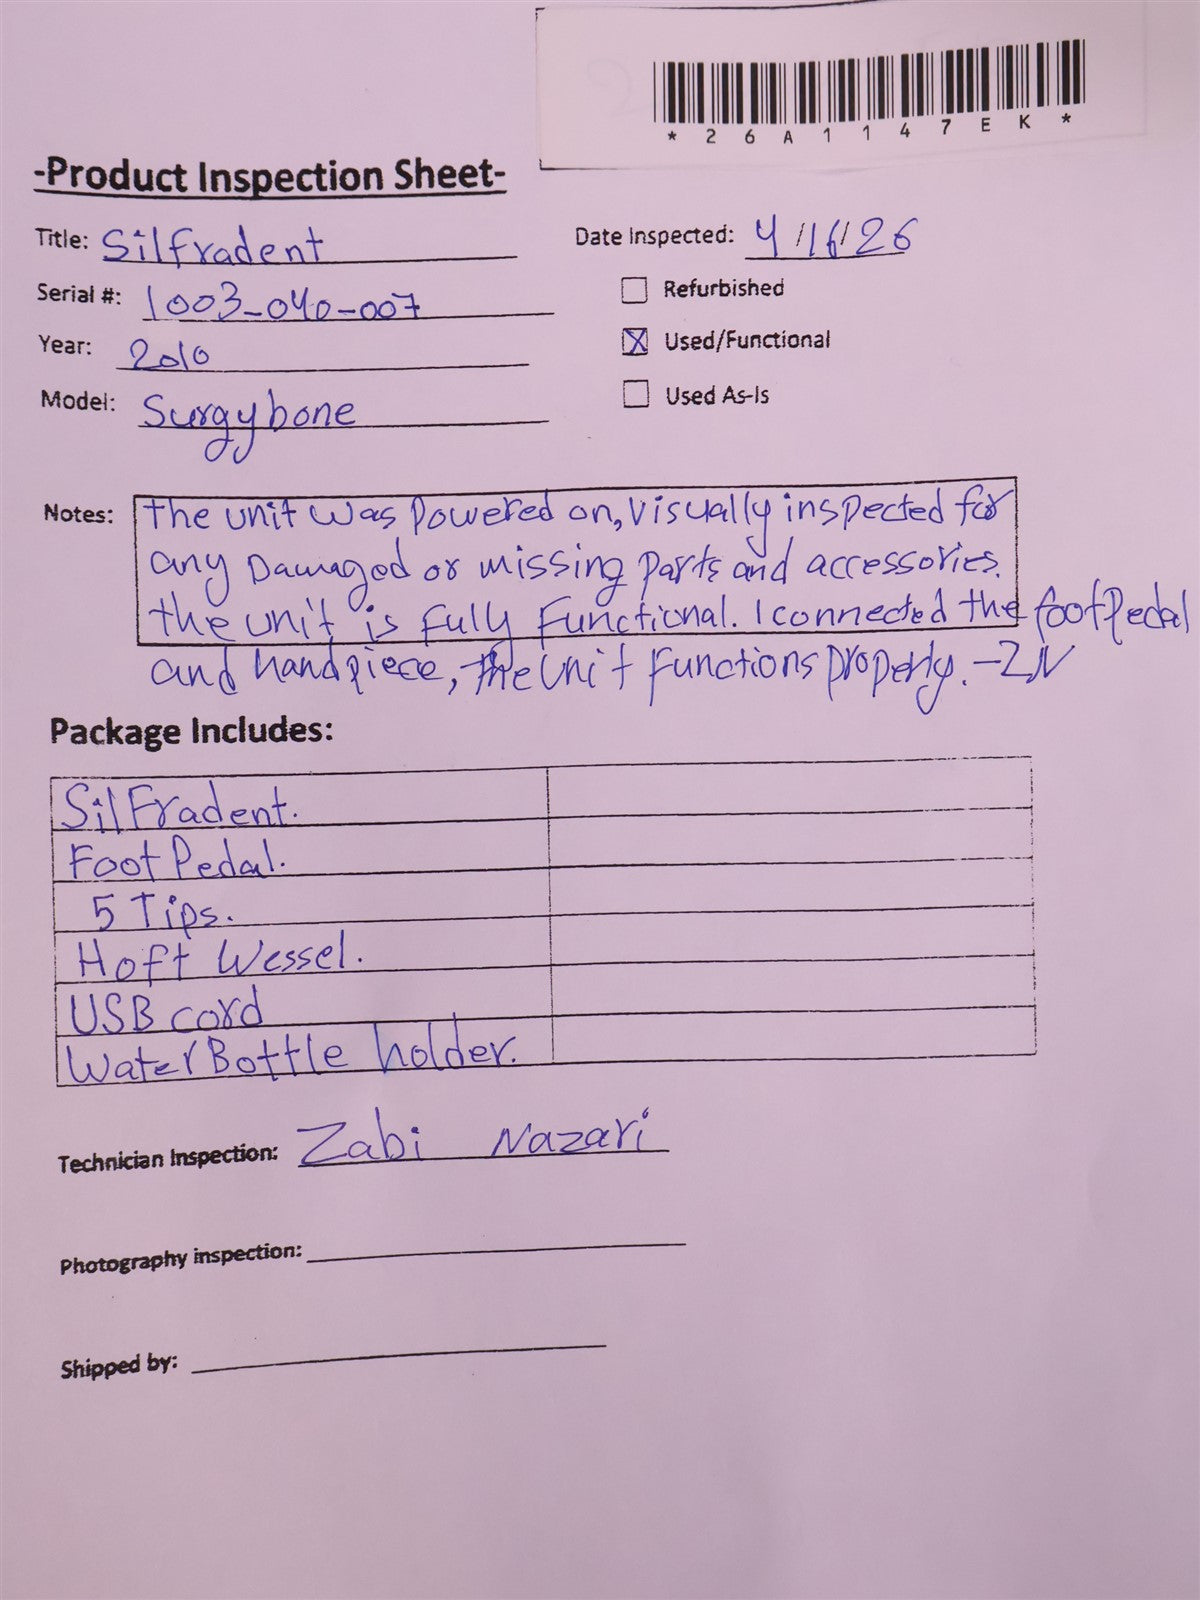 *26A1147EK*
-Product Inspection Sheet-
Title: Silfradent
Date Inspected: 4/16/26
Serial #: 1003-040-007
Refurbished
Year: 2010
Used/Functional
Model: Surgybone
Used As-Is
Notes: The unit was Powered on, visually inspected for
any Damaged or missing parts and accessories.
the unit is Fully Functional. I connected the foot Pedal
and handpiece, the unit Functions property. -ZN
Package Includes:
SilFradent.
Foot Pedal.
5 Tips.
Hoft Wessel.
USB cord
Water Bottle holder.
Technician Inspection: Zabi Nazari
Photography inspection:
Shipped by: